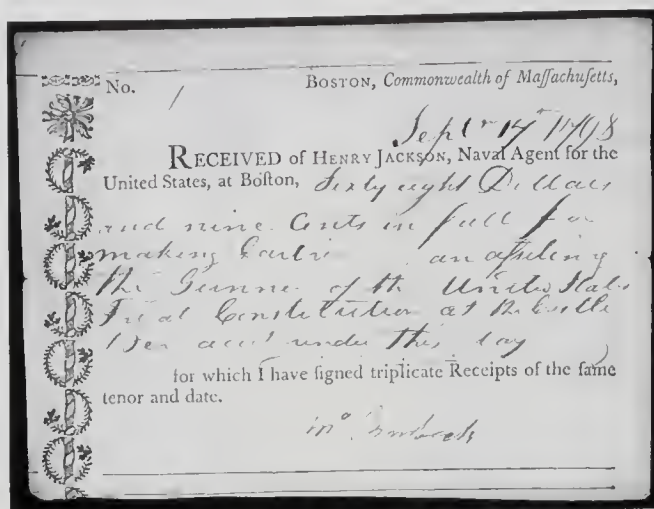 No. 1 BOSTON, Commonwealth of Maſſachuſetts,
Sepr 17 1798
RECEIVED of HENRY JACKSON, Naval Agent for the
United States, at Boſton, Sixty eight Dollars
and nine Cents in full for
making an aſsisting
the Gunner of the United States
Constitution at
acct under this day
for which I have ſigned triplicate Receipts of the ſame
tenor and date.
Jno